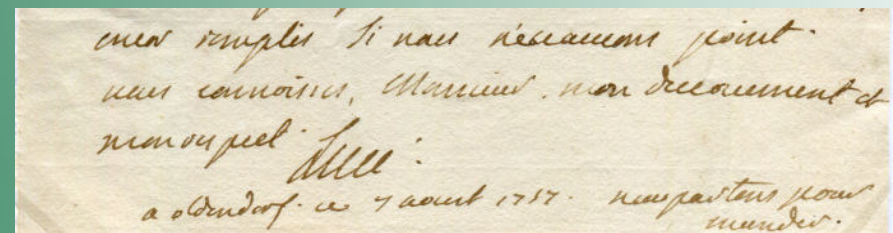 remplis Si nous point.
vous connoissés, Monsieur. mon devouement et
mon respect.
Lucé.
a oldendorf. ce 7 aoust 1757. nous partons pour
minden.